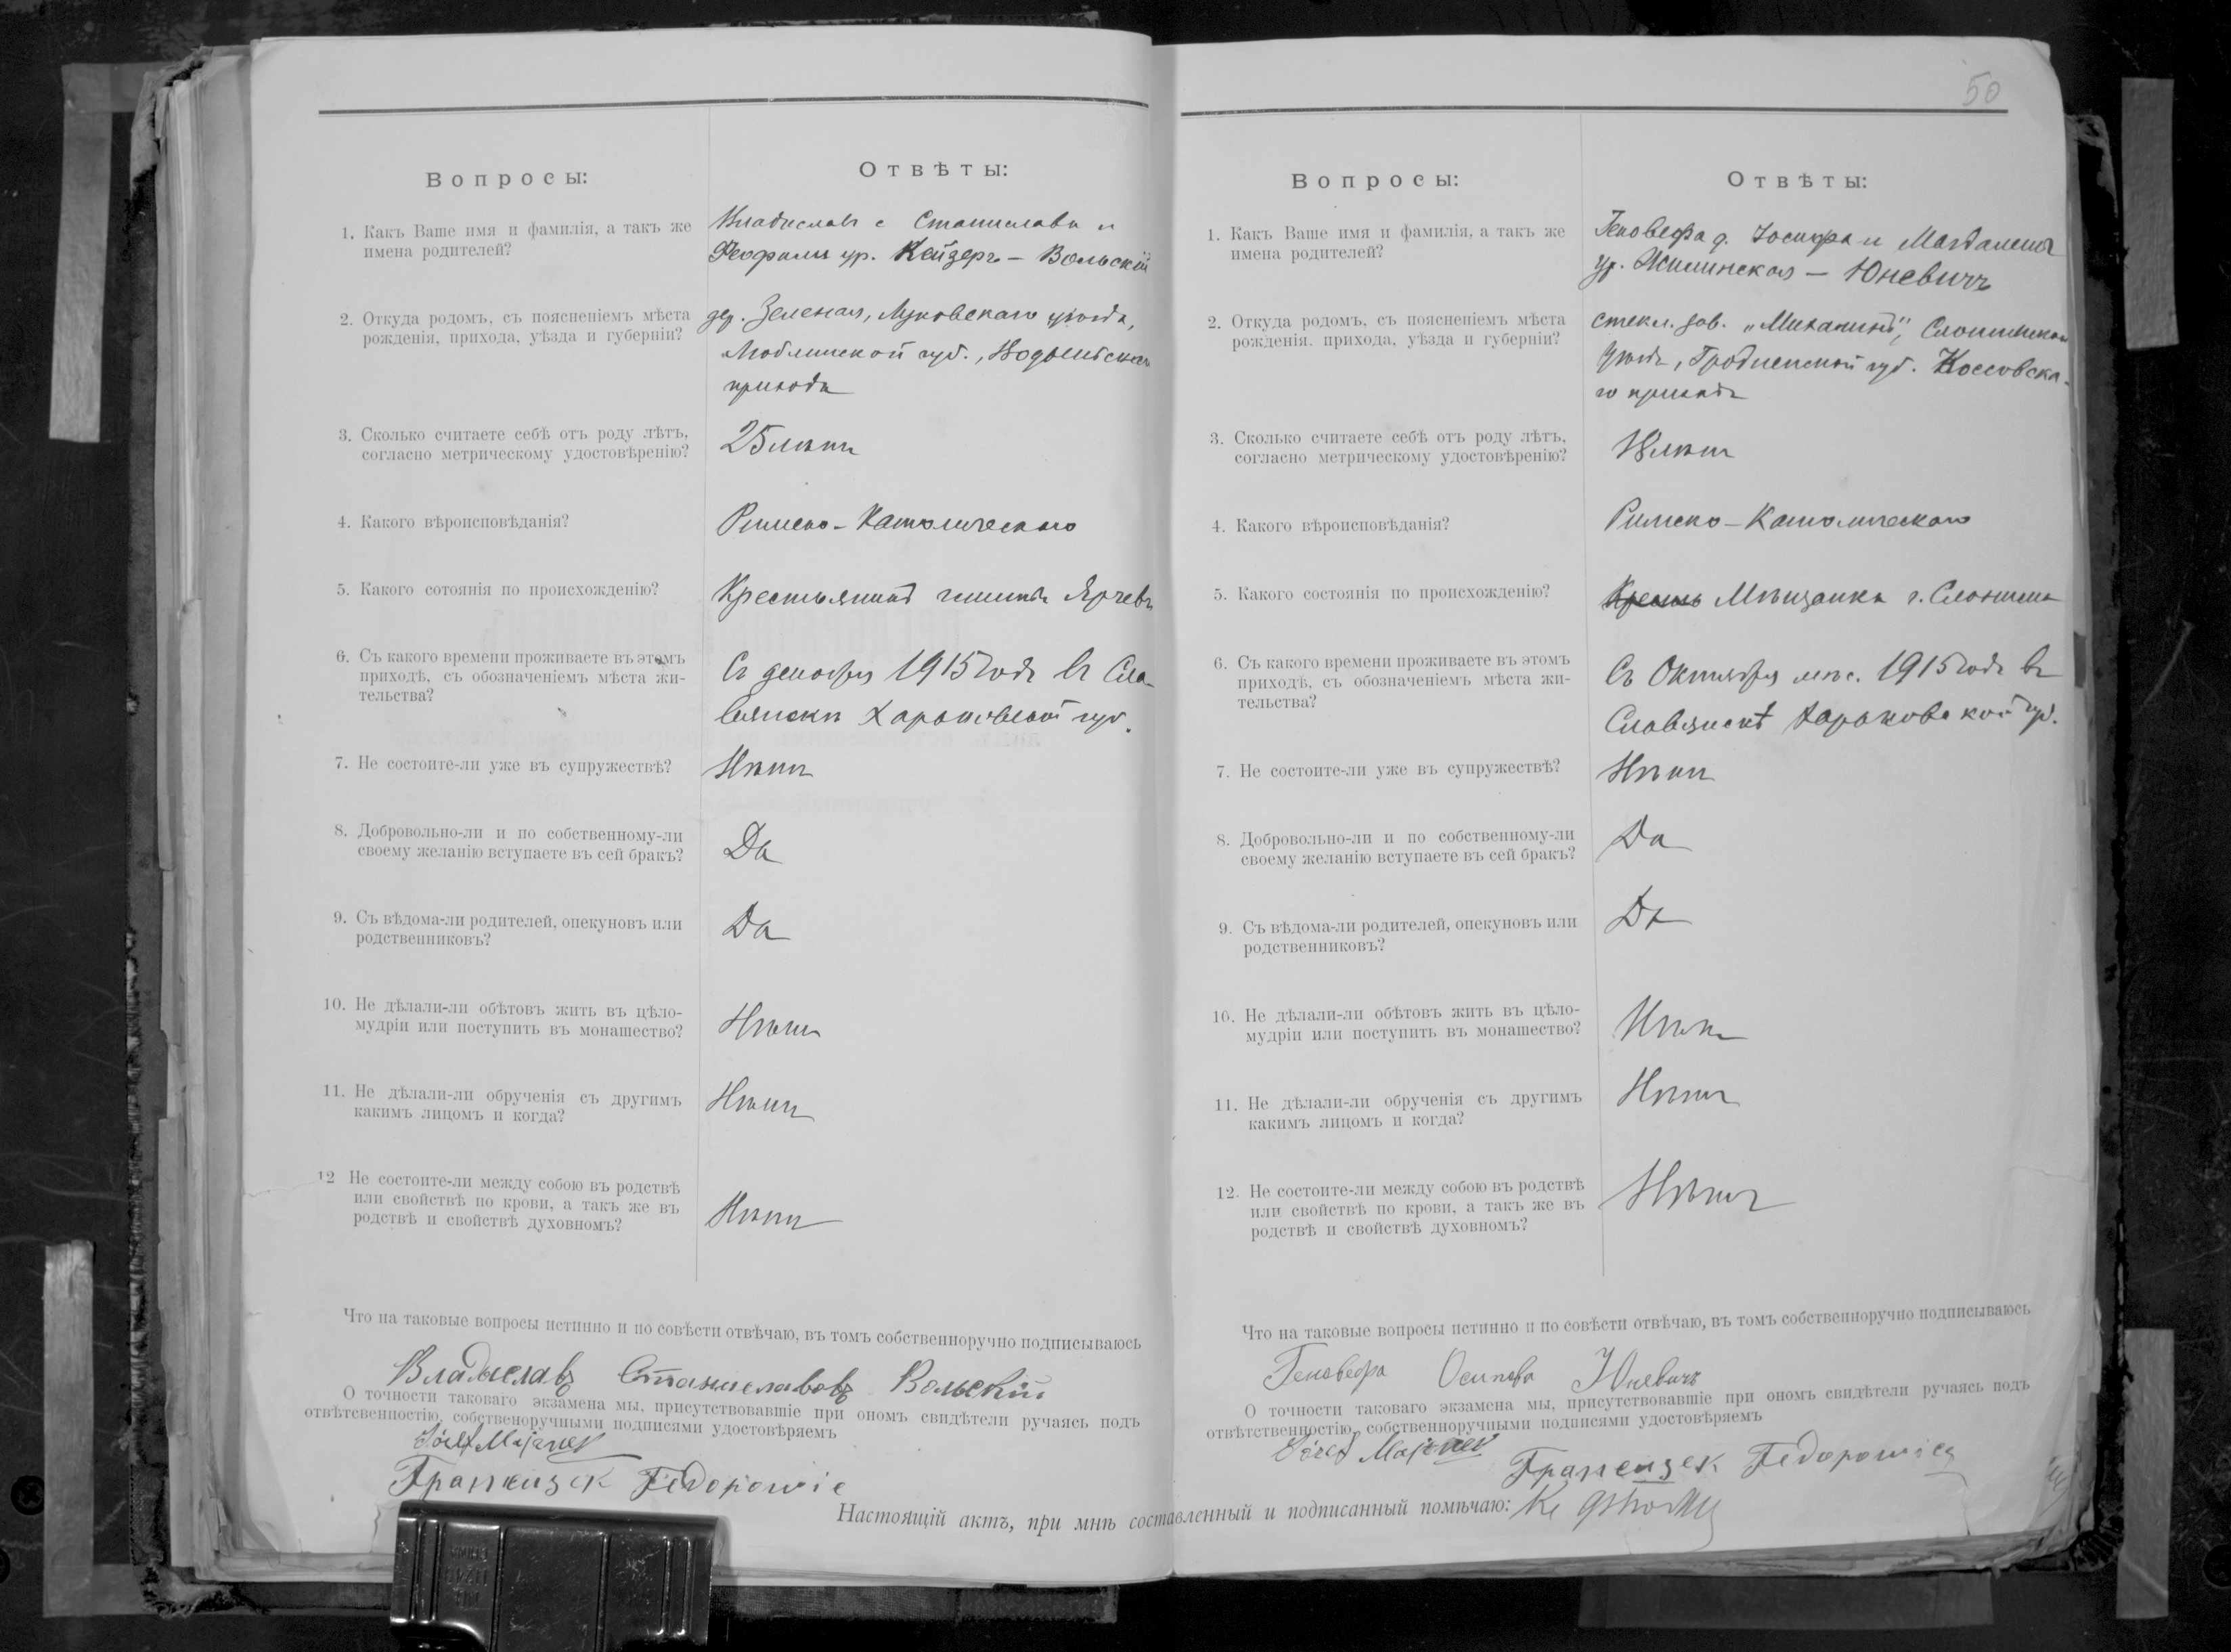 50
Вопросы:
Отвѣты:
1. Какъ Ваше имя и фамилія, а такъ же
имена родителей?
Владиславъ с Станислава и
Теофили ур. Кейзеръ – Вольскій
2. Откуда родомъ, съ поясненіемъ мѣста
рожденія, прихода, уѣзда и губерніи?
дер. Зеленая, Луковскаго уѣзда,
Люблинской губ.,
прихода
3. Сколько считаете себѣ отъ роду лѣтъ,
согласно метрическому удостовѣренію?
25 лѣтъ
4. Какого вѣроисповѣданія?
Римско-Католическаго
5. Какого сотоянія по происхожденію?
Крестьянинъ гмины
6. Съ какого времени проживаете въ этомъ
приходѣ, съ обозначеніемъ мѣста жи-
тельства?
Съ декабря 1915 года въ Сла-
вянскѣ Харьковской губ.
7. Не состоите-ли уже въ супружествѣ?
Нѣтъ
8. Добровольно-ли и по собственному-ли
своему желанію вступаете въ сей бракъ?
Да
9. Съ вѣдома-ли родителей, опекуновъ или
родственниковъ?
Да
10. Не дѣлали-ли обѣтовъ жить въ цѣло-
мудріи или поступить въ монашество?
Нѣтъ
11. Не дѣлали-ли обрученія съ другимъ
какимъ лицомъ и когда?
Нѣтъ
12 Не состоите-ли между собою въ родствѣ
или свойствѣ по крови, а такъ же въ
родствѣ и свойствѣ духовномъ?
Нѣтъ
Что на таковые вопросы истинно и по совѣсти отвѣчаю, въ томъ собственноручно подписываюсь
Владыславъ Станиславовъ Вольскій
О точности таковаго экзамена мы, присутствовавшіе при ономъ свидѣтели ручаясь подъ
отвѣтсвенностію, собственоручными подписями удостовѣряемъ
Józef Majanek
Вопросы:
Отвѣты:
1. Какъ Ваше имя и фамилія, а такъ же
имена родителей?
Геновефа д. Іосифа и Магдалены
ур. Жилинская – Юневичъ
2. Откуда родомъ, съ поясненіемъ мѣста
рожденія. прихода, уѣзда и губерніи?
стекл. зав. Слонимскаго
уѣзда, Гродненской губ. Коссовска-
го прихода
3. Сколько считаете себѣ отъ роду лѣтъ,
согласно метрическому удостовѣренію?
18 лѣтъ
4. Какого вѣроисповѣданія?
Римско-Католическаго
5. Какого состоянія по происхожденію?
Мѣщанка г. Слонима
6. Съ какого времени проживаете въ этомъ
приходѣ, съ обозначеніемъ мѣста жи-
тельства?
Съ Октября мѣс. 1915 года въ
Славянскѣ Харьковской губ.
7. Не состоите-ли уже въ супружествѣ?
Нѣтъ
8. Добровольно-ли и по собственному-ли
своему желанію вступаете въ сей бракъ?
Да
9. Съ вѣдома-ли родителей, опекуновъ или
родственниковъ?
Да
10. Не дѣлали-ли обѣтовъ жить въ цѣло-
мудріи или поступить въ монашество?
Нѣтъ
11. Не дѣлали-ли обрученія съ другимъ
какимъ лицомъ и когда?
Нѣтъ
12. Не состоите-ли между собою въ родствѣ
или свойствѣ по крови, а такъ же въ
родствѣ и свойствѣ духовномъ?
Нѣтъ
Что на таковые вопросы истинно и по совѣсти отвѣчаю, въ томъ собственноручно подписываюсь
Геновефа Осипова Юневичъ
О точности таковаго экзамена мы, присутствовавшіе при ономъ свидѣтели ручаясь подъ
отвѣтственностію, собственноручными подписями удостовѣряемъ
Józef Majanek
Настоящій актъ, при мнѣ составленный и подписанный помѣчаю: